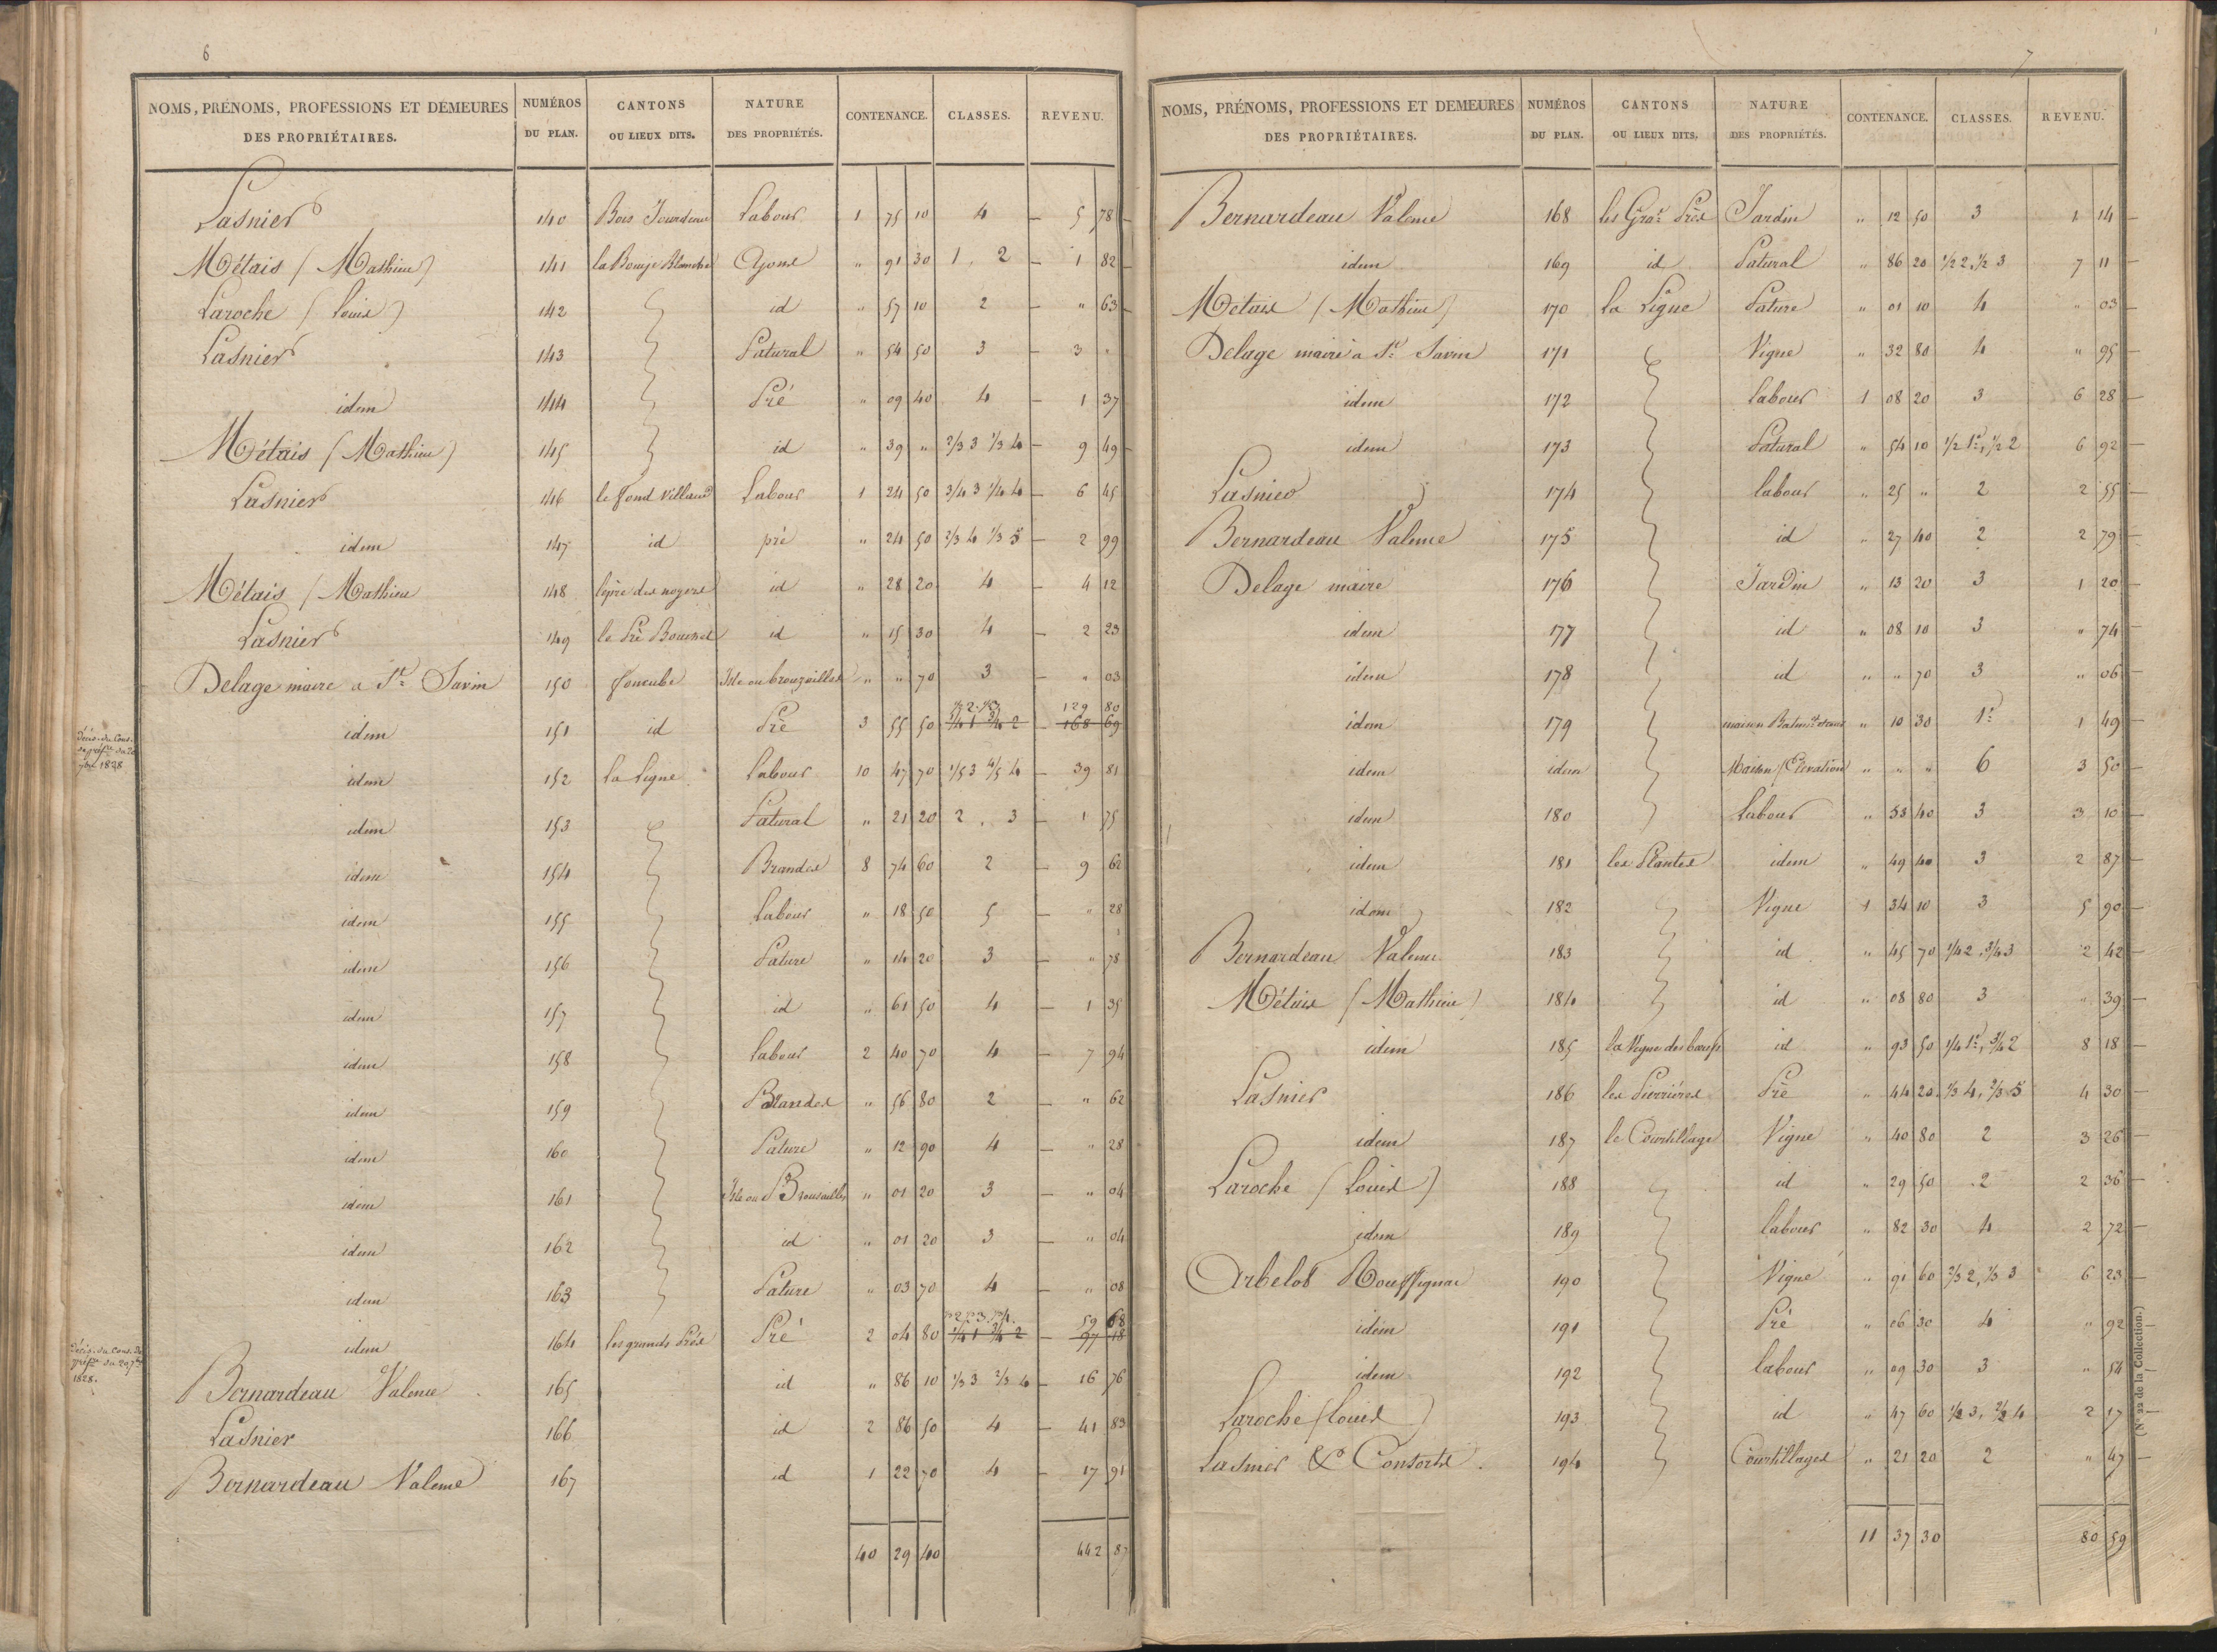 6
NOMS, PRÉNOMS, PROFESSIONS ET DEMEURES DES PROPRIÉTAIRES. NUMÉROS DU PLAN. CANTONS OU LIEUX DITS. NATURE DES PROPRIÉTÉS. CONTENANCE. CLASSES. REVENU.
Lasnier 140 Bois Jourdeau Labour 1 75 10 4 – 5 78
Métais (Mathieu) 141 la Blanche Ajonc " 91 30 1. 2 – 1 82
Laroche (Louis) 142 id " 57 10 2 – " 63
Lasnier 143 Patural " 54 50 3 – 3 "
idem 144 Pré " 09 40 4 – 1 37
Métais (Mathieu) 145 id " 39 " 2/3 3 1/3 4 – 9 49
Lasnier 146 le fond Villaud Labour 1 24 50 3/4 3 1/4 4 – 6 45
idem 147 id pré " 24 50 2/3 4 1/3 5 – 2 99
Métais (Mathieu 148 le pré des noyers id " 28 20 4 – 4 12
Lasnier 149 le Pré id " 15 30 4 – 2 23
Delage maire a St. Savin 150 foncube Isle ou brouzailles " " 70 3 – " 03
129 80
idem 151 id Pré 3 55 50 3/4 1 3/4 2 – 168 69
décis. du Cons. de préfre. du 20 7bre 1828
idem 152 La Ligne Labour 10 47 70 1/5 3 4/5 4 – 39 81
idem 153 Patural " 21 20 2. 3 – 1 75
idem 154 Brandes 8 74 60 2 – 9 62
idem 155 Labour " 18 50 5 – " 28
idem 156 Pature " 14 20 3 – " 78
idem 157 id " 61 50 4 – 1 35
idem 158 labour 2 40 70 4 – 7 94
idem 159 Brandes " 56 80 2 – " 62
idem 160 Pature " 12 90 4 – " 28
idem 161 Isle ou Brousailles " 01 20 3 – " 04
idem 162 id " 01 20 3 – " 04
idem 163 Pature " 03 70 4 – " 08
59 68
idem 164 les grands Prés Pré 2 04 80 1/4 1 3/4 2 – 97 18
décis. du Cons. de préfre. du 20 7bre 1828.
Bernardeau Valence 165 id " 86 10 1/3 3 2/3 4 – 16 76
Lasnier 166 id 2 86 50 4 – 41 83
Bernardeau Valence 167 id 1 22 70 4 – 17 91
40 29 40 442 87
7
NOMS, PRÉNOMS, PROFESSIONS ET DEMEURES DES PROPRIÉTAIRES. NUMÉROS DU PLAN. CANTONS OU LIEUX DITS. NATURE DES PROPRIÉTÉS. CONTENANCE. CLASSES. REVENU.
Bernardeau Valence 168 les Grds. Prés Jardin " 12 50 3 1 14
idem 169 id Patural " 86 20 1/2 2, 1/2 3 7 11
Metais (Mathieu) 170 la Ligne Pature " 01 10 4 " 03
Delage maire a St. Savin 171 Vigne " 32 80 4 " 95
idem 172 labour 1 08 20 3 6 28
idem 173 Patural " 54 10 1/2 1er, 1/2 2 6 92
Lasnier 174 labour " 25 " 2 2 55
Bernardeau Valence 175 id " 27 40 2 2 79
Delage maire 176 Jardin " 13 20 3 1 20
idem 177 id " 08 10 3 " 74
idem 178 id " " 70 3 " 06
idem 179 maison Batimt. " 10 30 1er 1 49
idem idem Maison (Elevation " " " 6 3 50
idem 180 Labour " 53 40 3 3 10
idem 181 les Plantes idem " 49 40 3 2 87
idem 182 Vigne 1 34 10 3 5 90
Bernardeau Valence 183 id " 45 70 1/4 2, 3/4 3 2 42
Métais (Mathieu) 184 id " 08 80 3 " 39
idem 185 la Vigne des bœufs id " 93 50 1/4 1er, 3/4 2 8 18
Lasnier 186 les Perrières Pré " 44 20 1/3 4, 2/3 5 4 30
idem 187 le Courtillage Vigne " 40 80 2 3 26
Laroche (Louis) 188 id " 29 50 2 2 36
idem 189 labour " 82 30 4 2 72
Arbelot Rouffignac 190 Vigne " 91 60 2/3 2, 1/3 3 6 23
idem 191 Pré " 06 30 4 " 92
idem 192 labour " 09 30 3 " 54
Laroche (Louis) 193 id " 47 60 1/2 3, 1/2 4 2 17
Lasnier & Consorts. 194 Courtillages " 21 20 2 " 47
11 37 30 80 59
(N° 22 de la Collection.)